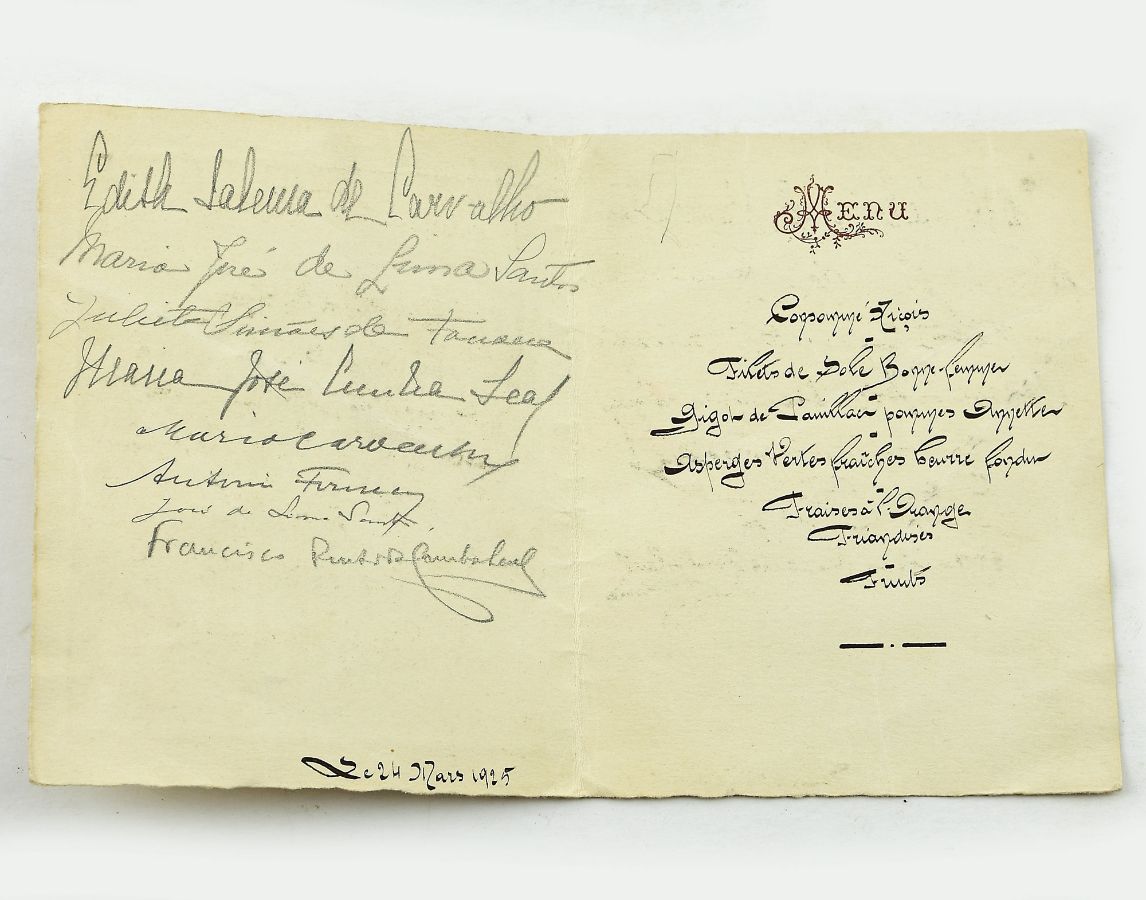 Edith Salema de Carvalho
Maria José de Lima Santos
Julieta Simões de Fonseca
Maria José Cunha Leal
Mario
Antonio
José de Lima Santos
Francisco Pinto da Cunha Leal
Le 24 Mars 1925
5/
Menu
Consommé
Filets de Sole Bonne-femme
Gigot de Pauillac pommes Annette
Asperges Vertes fraîches beurre fondu
Fraises à l'Orange
Friandises
Fruits